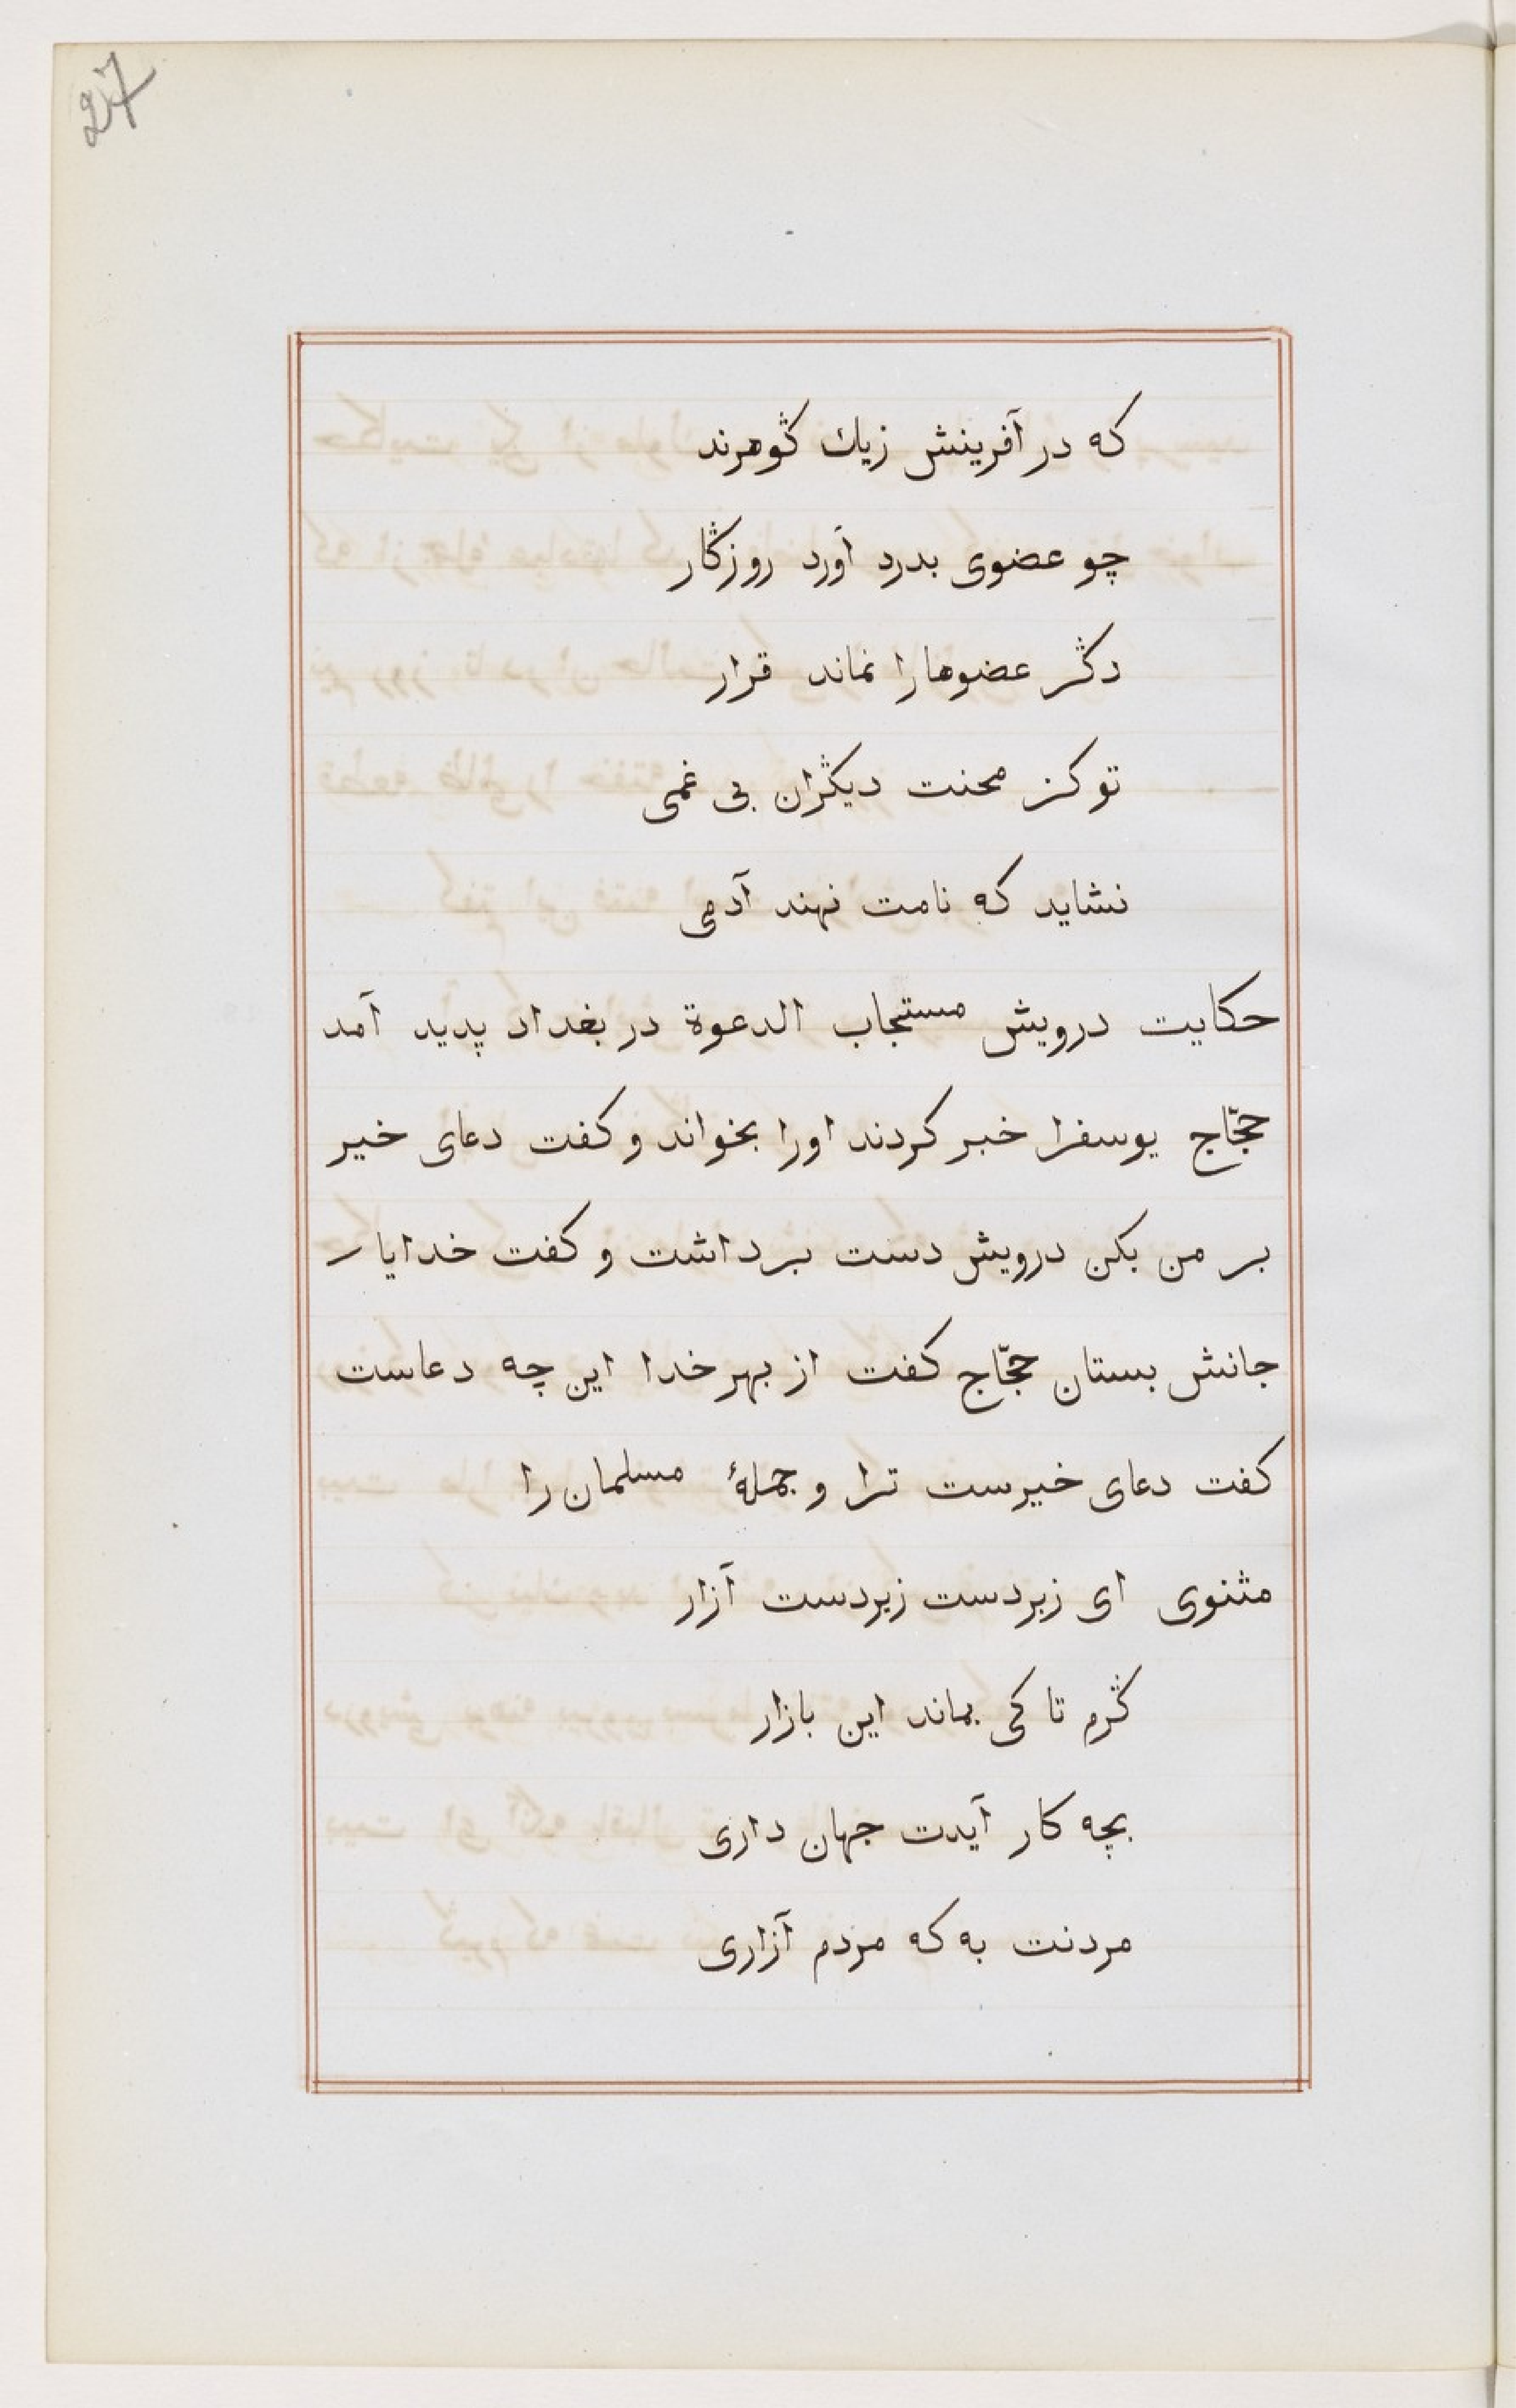 27
که در آفرینش زیك ڭوهرند
چو عضوی بدرد آورد روزڭار
دڭر عضوهارا نماند قرار
تو کز محنت دیڭران بی غمی
نشاید که نامت نهند آدمی
حکایت درویش مستجاب الدعوة در بغداد پدید آمد
حجّاج یوسفرا خبر کردند اورا بخواند و کفت دعای خیر
بر من بکن درویش دست برداشت و کفت خدایا
جانش بستان حجّاج کفت از بهر خدا این چه دعاست
کفت دعای خیرست ترا و جملهٔ مسلمان را
مثنوی ای زبردست زیردست آزار
ڭرم تا کی بماند این بازار
بچه کار آیدت جهان داری
مردنت به که مردم آزاری